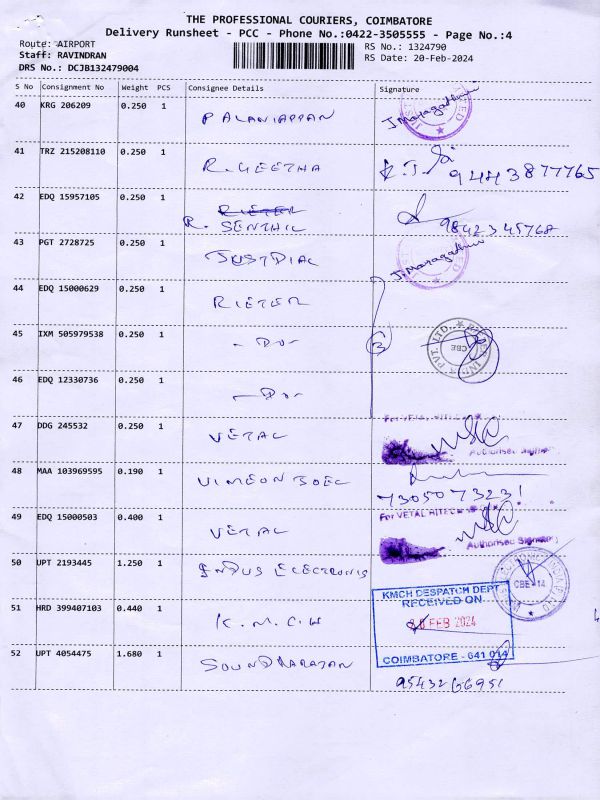 THE PROFESSIONAL COURIERS, COIMBATORE
Delivery Runsheet - PCC - Phone No.:0422-3505555 - Page No.:4
Route: AIRPORT
RS No.: 1324790
Staff: RAVINDRAN
RS Date: 20-Feb-2024
DRS No.: DCJB132479004
S No Consignment No Weight PCS Consignee Details Signature
40 KRG 206209 0.250 1 PALANIAPPAN
41 TRZ 215208110 0.250 1 R. GEETHA 9443877765
42 EDQ 15957105 0.250 1 RIETER
R. SENTHIL
43 PGT 2728725 0.250 1 JUSTDIAL
44 EDQ 15000629 0.250 1 RIETER
45 IXM 505979538 0.250 1 - Do - 3
CBE
46 EDQ 12330736 0.250 1 - Do -
47 DDG 245532 0.250 1 VETAL
Authorised Signatory
48 MAA 103969595 0.190 1
7305073231
49 EDQ 15000503 0.400 1 VETAL For VETAL HITECH
Authorised Signatory
50 UPT 2193445 1.250 1 INDUS ELECTRONIS
CBE-14
51 HRD 399407103 0.440 1 K.M.C.H KMCH DESPATCH DEPT
RECEIVED ON
FEB 2024
COIMBATORE - 641 014
52 UPT 4054475 1.680 1 SOUNDHARAJAN
9543266951